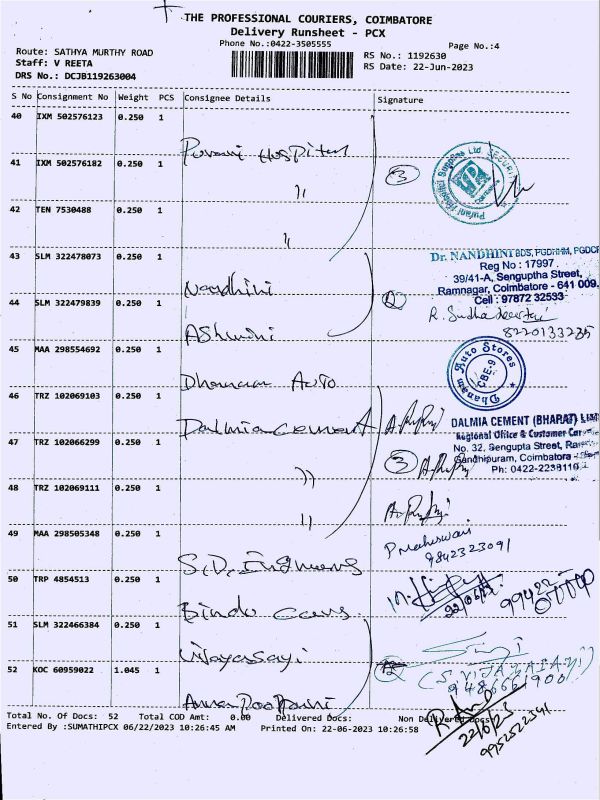 THE PROFESSIONAL COURIERS, COIMBATORE
Delivery Runsheet - PCX
Phone No.:0422-3505555
Page No.:4
Route: SATHYA MURTHY ROAD
Staff: V REETA
DRS No.: DCJB119263004
RS No.: 1192630
RS Date: 22-Jun-2023
S No Consignment No Weight PCS Consignee Details Signature
40 IXM 502576123 0.250 1
Purani Hospital
41 IXM 502576182 0.250 1
"
3
42 TEN 7530488 0.250 1
"
43 SLM 322478073 0.250 1
Nandhini
Dr. NANDHINI BDS, PGDHHM, PGDCR
Reg No : 17997
39/41-A, Senguptha Street,
Ramnagar, Coimbatore - 641 009.
Cell : 97872 32533
44 SLM 322479839 0.250 1
Ashwini
2
8220133235
45 MAA 298554692 0.250 1
Dhanam Auto
Dhanam Auto Stores
CBE-9
46 TRZ 102069103 0.250 1
Dalmia Cement
DALMIA CEMENT (BHARAT)
Regional Office & Customer
No. 32, Sengupta Street,
Gandhipuram, Coimbatore
Ph: 0422-2238110
47 TRZ 102066299 0.250 1
"
3
48 TRZ 102069111 0.250 1
"
49 MAA 298505348 0.250 1
S.D. Engineers
P Maheswari
9842323091
50 TRP 4854513 0.250 1
Bindo Cars
22/06/23
51 SLM 322466384 0.250 1
Vijayasayi
52 KOC 60959022 1.045 1
2
9486661900
Total No. Of Docs: 52 Total COD Amt: 0.00 Delivered Docs: Non Delivered Docs:
Entered By :SUMATHIPCX 06/22/2023 10:26:45 AM Printed On: 22-06-2023 10:26:58
22/6/23
9952522541